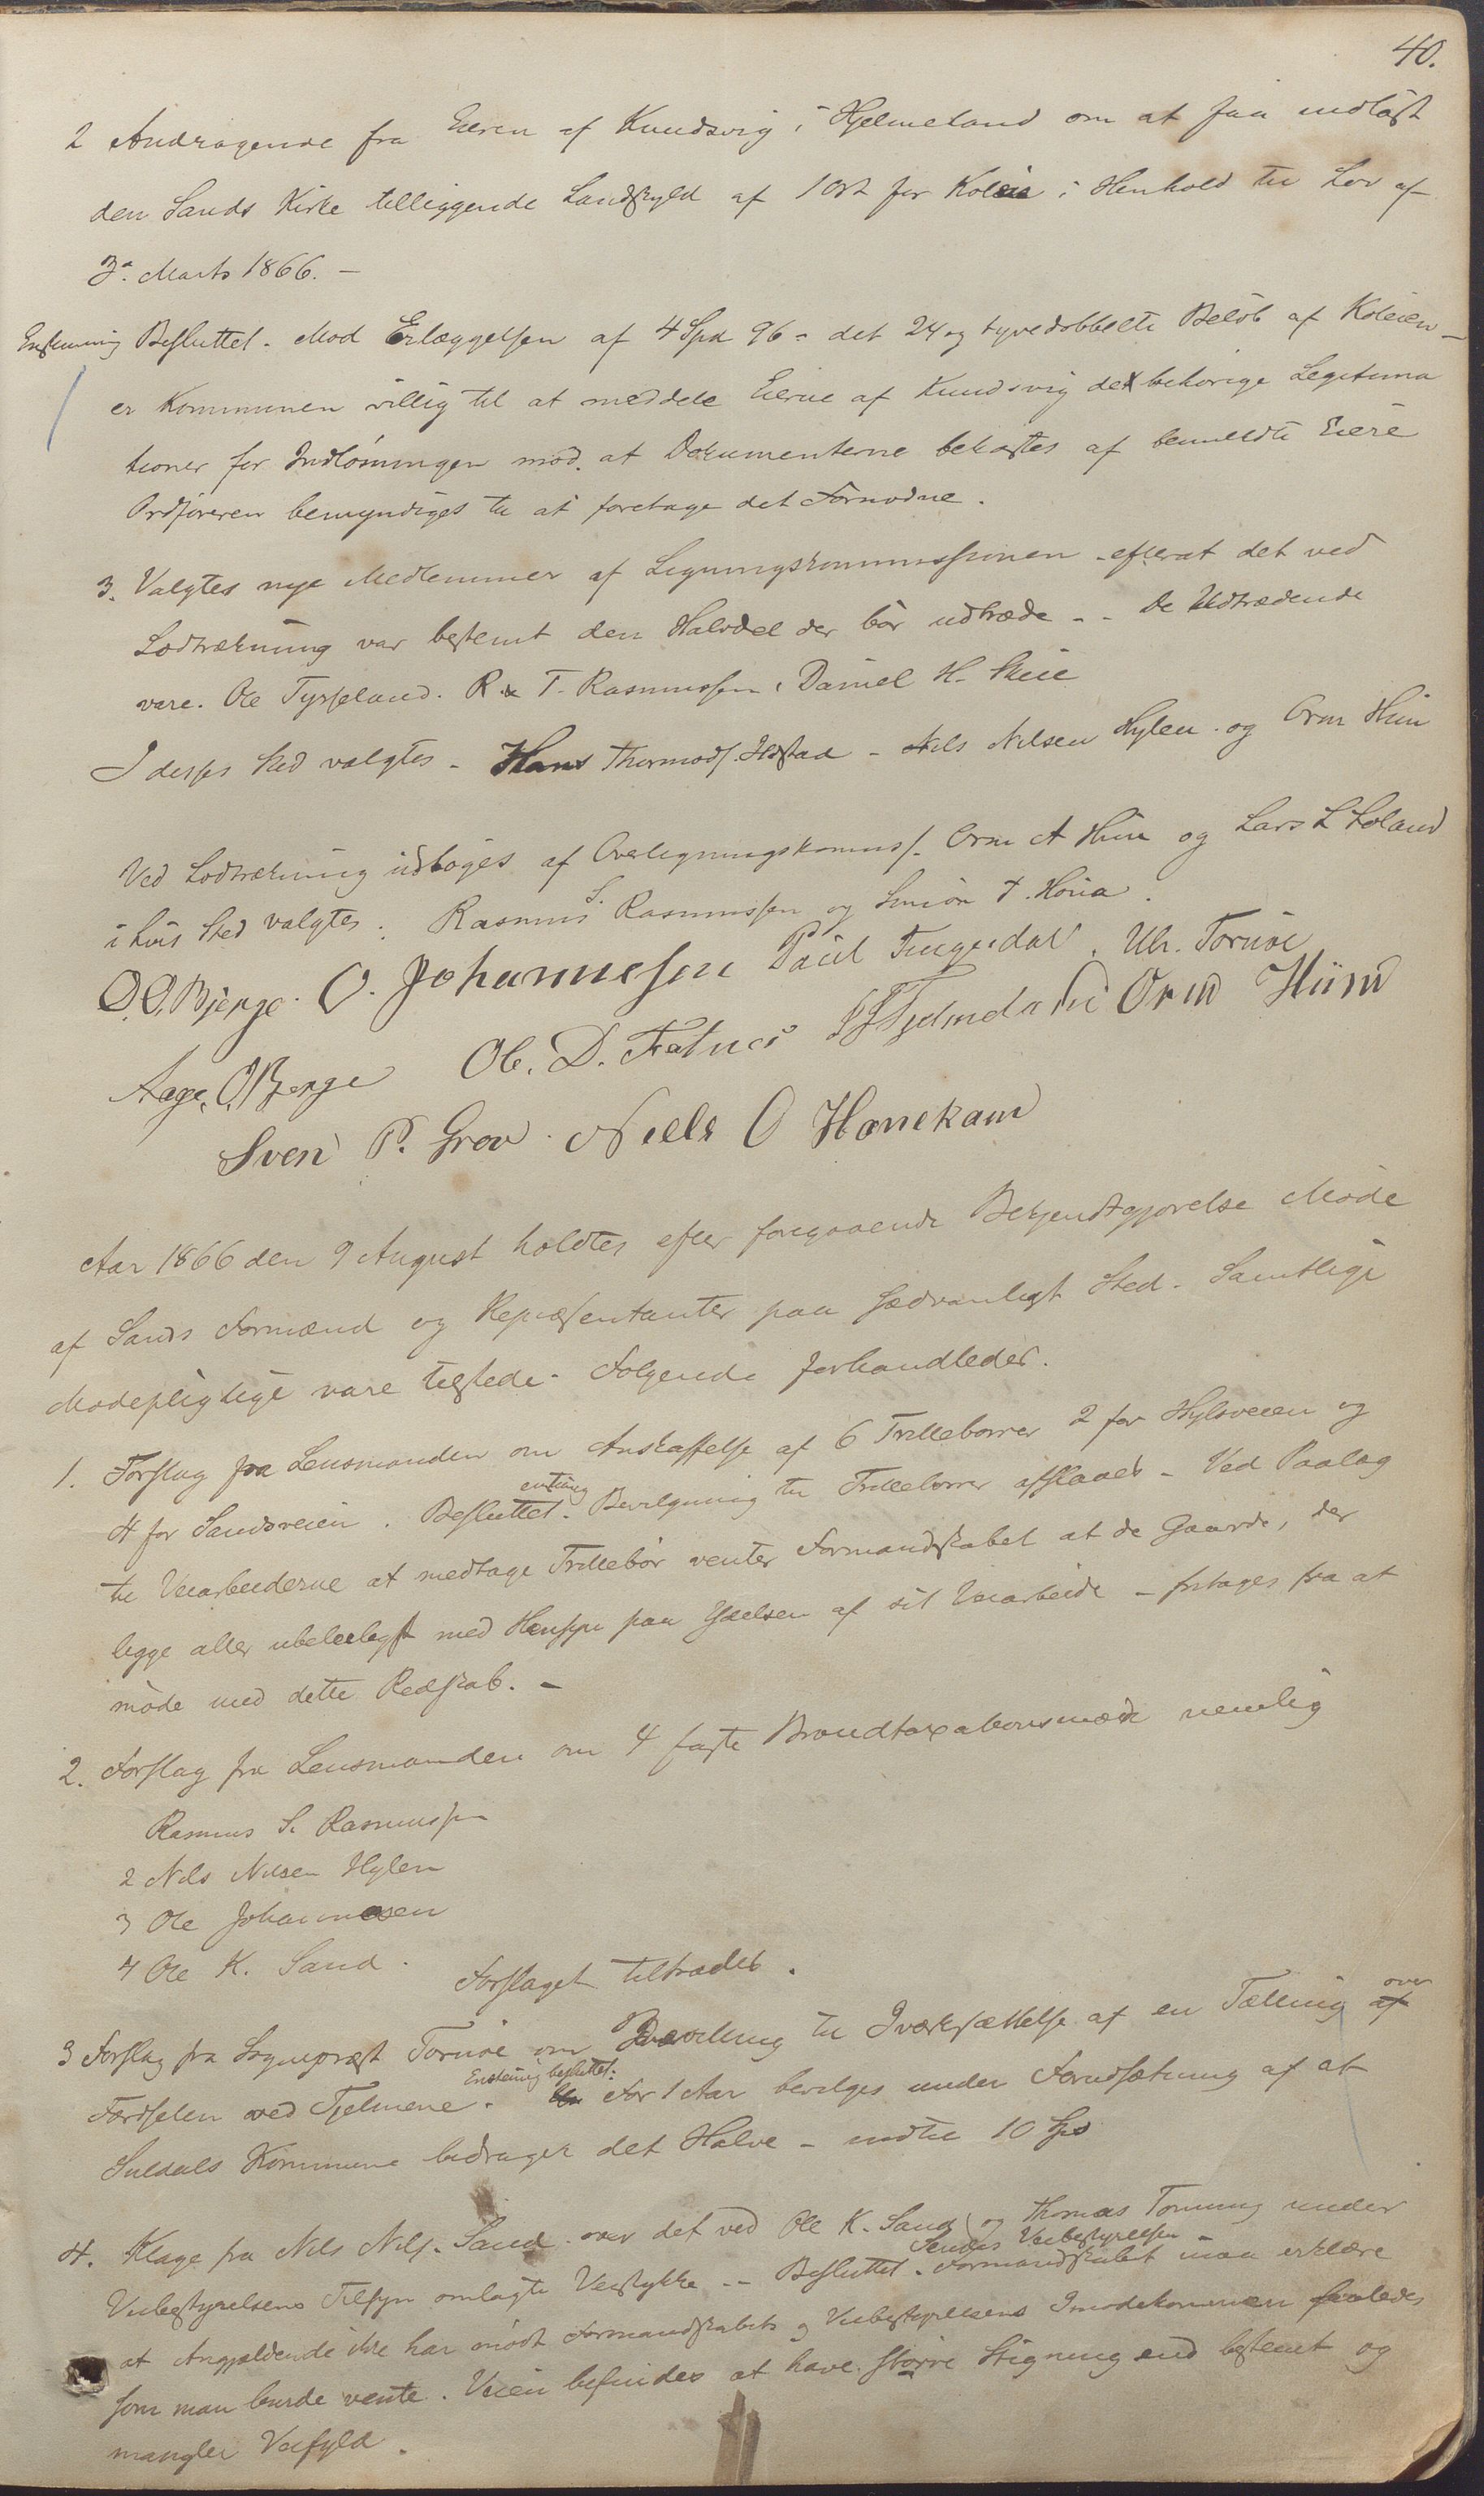 40.
2 Andragende fra Eieren af Knudsvig i Hjelmeland om at faa indløst
den Sands Kirke tilliggende Landskyld af 1 Ort for Koleie i Henhold til Lov af
3. Marts 1866. –
Enstemmig Besluttet. Mod Erlæggelsen af 4 Spd 96 – det 24 og tyvedobbelte Beløb af Koleien –
er Kommunen villig til at meddele Eierne af Knudsvig de behørige Legitima
tioner for Indløsningen mod at Dokumenterne bekostes af bemeldte Eiere
Ordføreren bemyndiges til at foretage det Fornødne.
3. Valgtes nye Medlemmer af Ligningskommissionen – efterat det ved
Lodtrækning var bestemt den Halvdel der bør udtræde – De Udtrædende
vare. Ole Tysseland. R. T. Rasmussen, Daniel H. Skeie
I disses Sted valgtes – Hans Thormods. – Nils Nilsen Hylen og Orm Hiim
Ved Lodtrækning udtoges af Overligningskommis. Orm A Hiim og Lars L Løland
i hvis Sted valgtes. Rasmus S. Rasmussen og Simon T. Honia.
O.O. Bjerge. O. Johannesen Paul Tengesdal. Ulr. Tornøe
Aage O. Bjerge Ole. D. Fatnes Orm Hiim
Sven P. Grov. Niels O Hanekam
Aar 1866 den 9 August holdtes efter foregaaende Bekjendtgjørelse Møde
af Sands Formænd og Repræsentanter paa sædvanligt Sted. Samtlige
Mødepligtige vare tilstede. Følgende forhandledes.
1. Forslag fra Lensmanden om Anskaffelse af 6 Trillebører 2 for Hylsveien og
4 for Sandsveien. Besluttet enstemmig. Bevilgning til Trillebører afslaaes – Ved Paalæg
til Veiarbeiderne at medtage Trillebør venter Formandskabet at de Gaarde, der
ligge aller ubeleiligst med Hensyn paa Ydelsen af sit Veiarbeide – fritages fra at
møde med dette Redskab. –
2. Forslag fra Lensmanden om 4 faste Brandtaxationsmænd nemlig
Rasmus S. Rasmussen
2 Nils Nilsen Hylen
3 Ole Johannesen
4 Ole K. Sand.
Forslaget tiltrædes.
3 Forslag fra Sogneprest Tornøe om Bevilling til Iværksættelse af en Tælling af over
Færdselen ved Tjelmene. Enstemmig besluttet: For 1 Aar bevilges under Forudsætning af at
Suldals Kommune bidrager det Halve – indtil 10 Spd
4. Klage fra Nils Nils. Sand over det ved Ole K. Sand og Thomas Tonning under
Veibestyrelsens Tilsyn omlagte Veistykke – Besluttet. Sendes Veibestyrelsen – Formandskabet maa erklære
at Angjældende ikke har mødt Formandskabets og Veibestyrelsens Imødekommen saaledes
som man burde vente. Veien befindes at have større Stigning end bestemt og
mangler Veifyld.